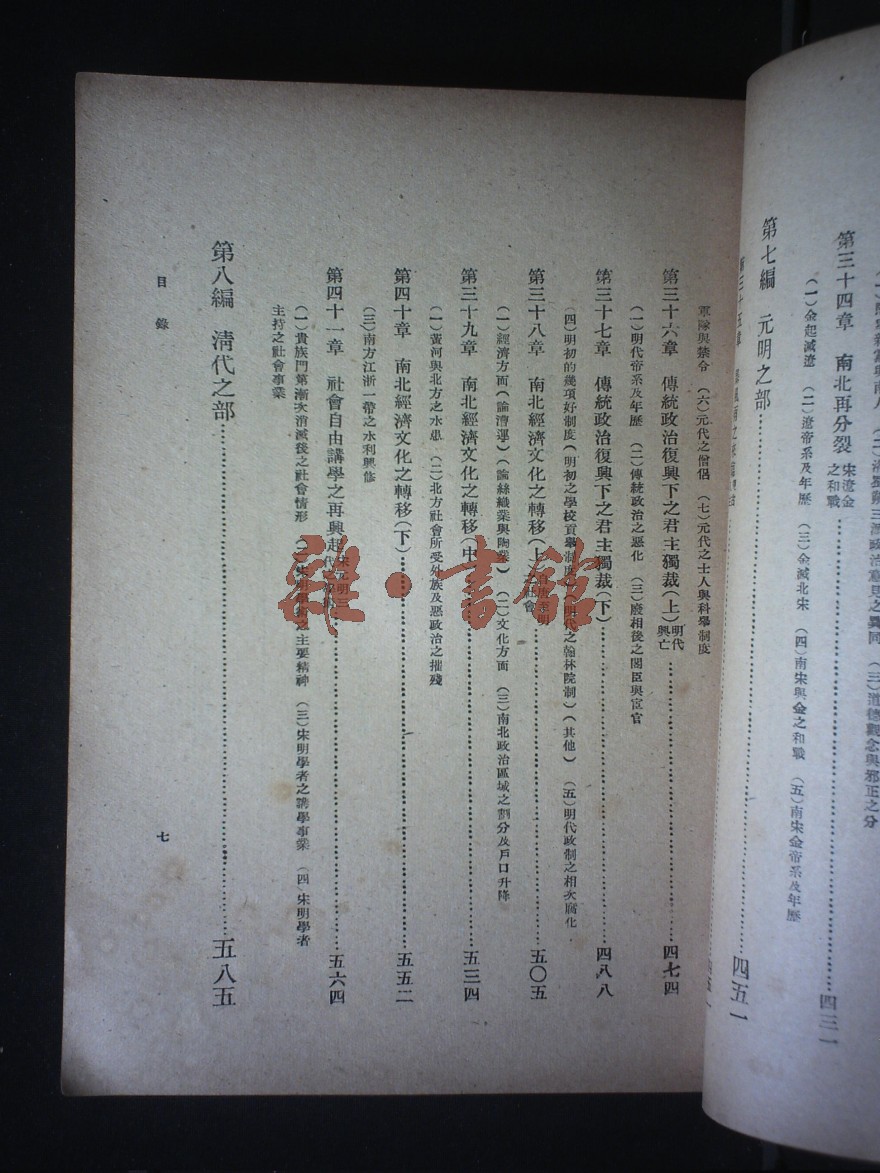 第三十四章 南北再分裂 宋遼金之和戰……四三一
(一)金起滅遼 (二)遼帝系及年歷 (三)金滅北宋 (四)南宋與金之和戰 (五)南宋金帝系及年歷
第七編 元明之部……四五一
軍隊與禁令 (六)元代之僧侶 (七)元代之士人與科舉制度
第三十六章 傳統政治復興下之君主獨裁(上)明代興亡……四七四
(一)明代帝系及年歷 (二)傳統政治之惡化 (三)廢相後之閣臣與宦官
第三十七章 傳統政治復興下之君主獨裁(下)……四八八
(四)明初的幾項好制度(明初之學校貢舉制度)(明代之翰林院制)(其他) (五)明代政制之相次腐化
第三十八章 南北經濟文化之轉移(上)……五〇五
(一)經濟方面(論漕運)(論絲織業與陶業) (二)文化方面 (三)南北政治區域之劃分及戶口升降
第三十九章 南北經濟文化之轉移(中)……五三四
(一)黃河與北方之水患 (二)北方社會所受外族及惡政治之摧殘
第四十章 南北經濟文化之轉移(下)……五五二
(三)南方江浙一帶之水利興修
第四十一章 社會自由講學之再興起……五六四
(一)貴族門第漸次消滅後之社會情形 (二)宋明學術之主要精神 (三)宋明學者之講學事業 (四)宋明學者
主持之社會事業
第八編 清代之部……五八五
目錄
七
雜·書館